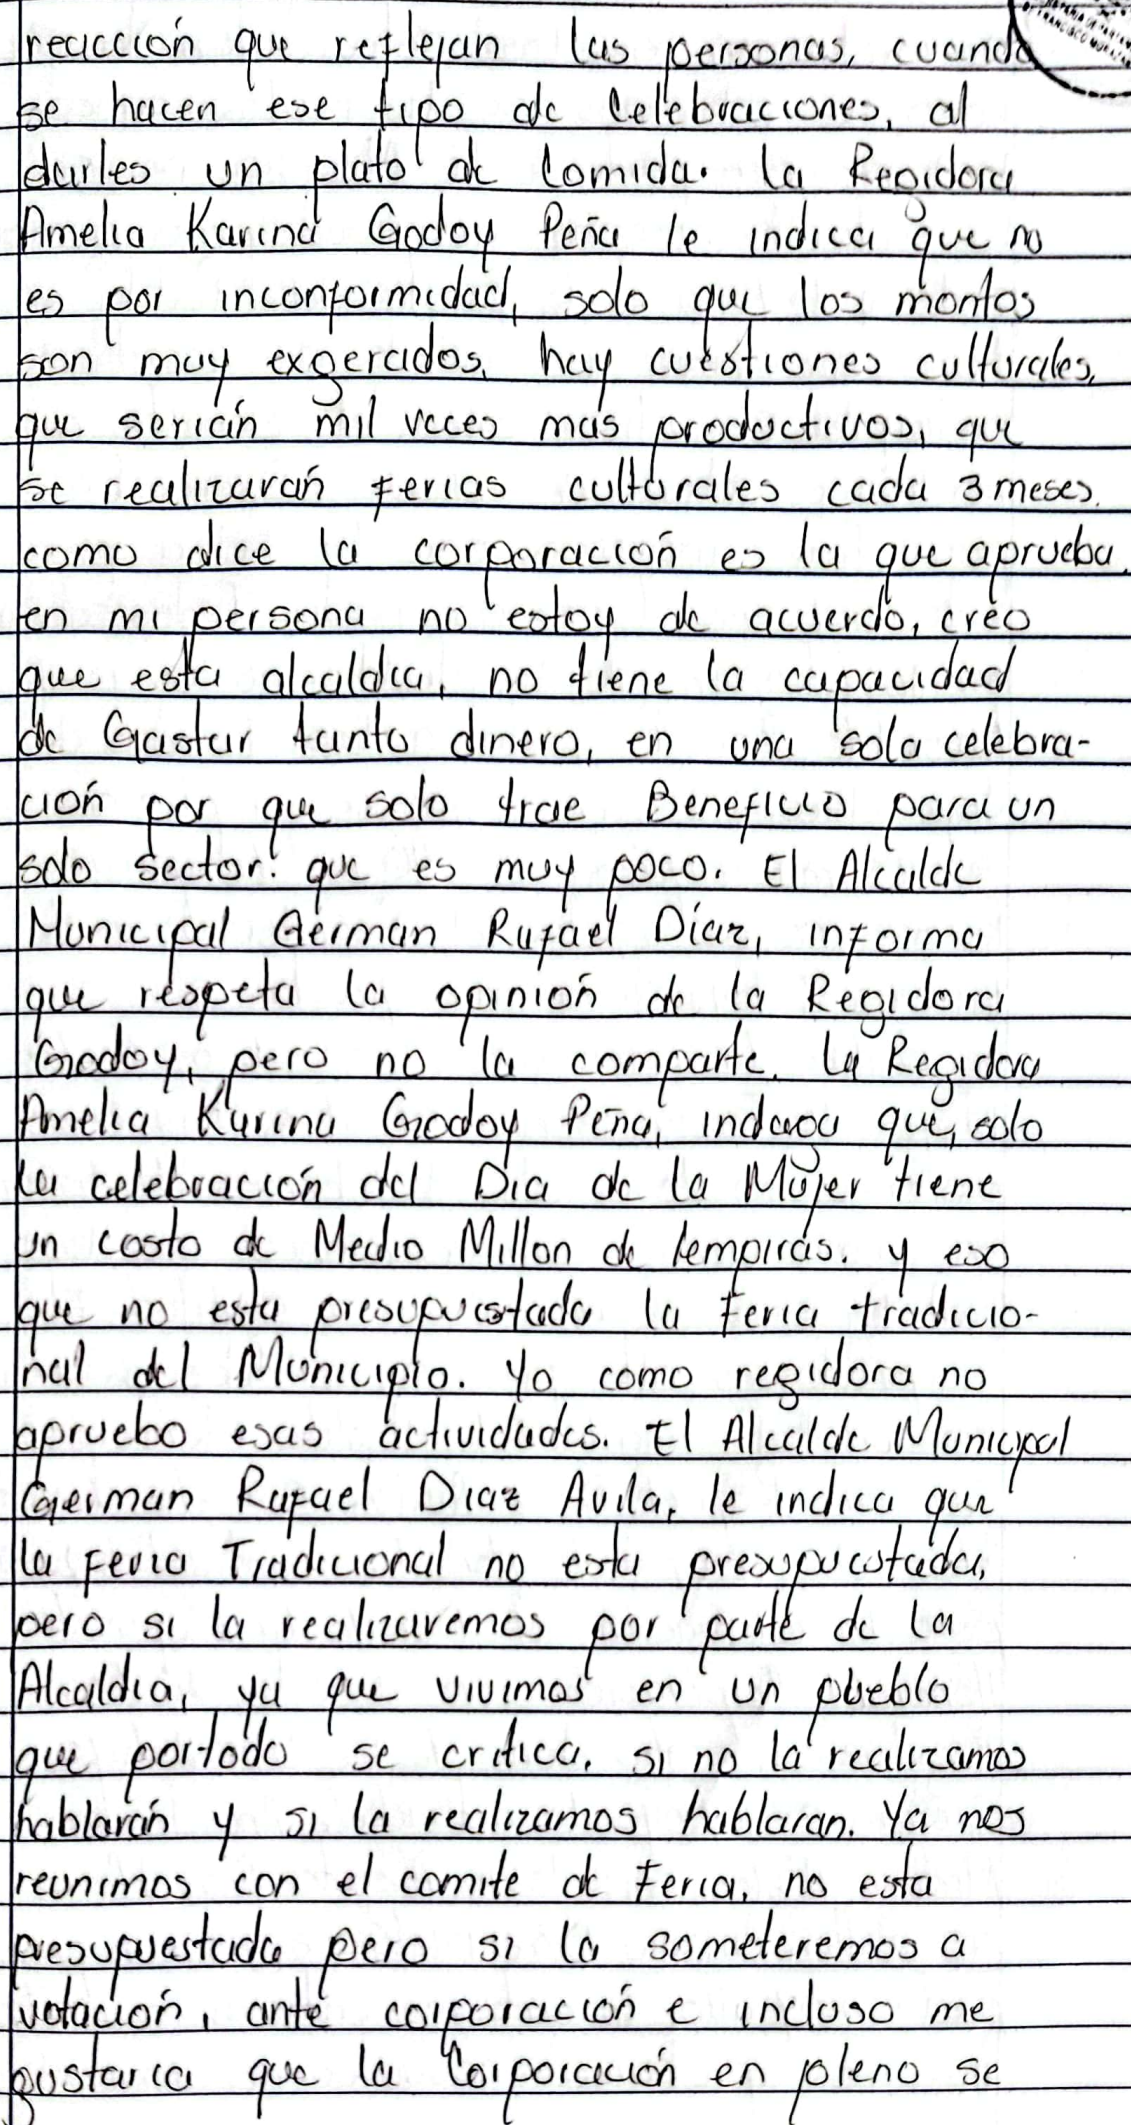 reacción que reflejan las personas, cuando
se hacen ese tipo de Celebraciones, al
darles un plato de Comida. la Regidora
Amelia Karina Godoy Peña le indica que no
es por inconformidad, solo que los montos
son muy exgerados, hay cuestiones culturales,
que serián mil veces más productivos, que
se realizarán ferias culturales cada 3 meses.
como dice la corporación es la que aprueba,
en mi persona no estoy de acuerdo, creo
que esta alcaldia, no tiene la capacidad
de Gastar tanto dinero, en una sola celebra-
ción por que solo trae Beneficio para un
solo sector. que es muy poco. El Alcalde
Municipal German Rafael Díaz, informa
que respeta la opinión de la Regidora
Godoy, pero no la comparte. La Regidora
Amelia Karina Godoy Peña, que, solo
la celebración del Dia de la Mujer tiene
un costo de Medio Millon de lempiras. y eso
que no esta presupuestada la feria tradicio-
nal del Municipio. Yo como regidora no
apruebo esas actividades. El Alcalde Municipal
German Rafael Diaz Avila, le indica que
la Feria Tradicional no esta presupuestada,
pero si la realizaremos por parte de la
Alcaldia, ya que vivimos en un pueblo
que portodo se critica, si no la realizamos
hablarán y si la realizamos hablaran. Ya nos
reunimos con el comite de Feria, no esta
presupuestada pero si la someteremos a
votación, ante corporación e incluso me
gustaria que la Corporación en pleno se